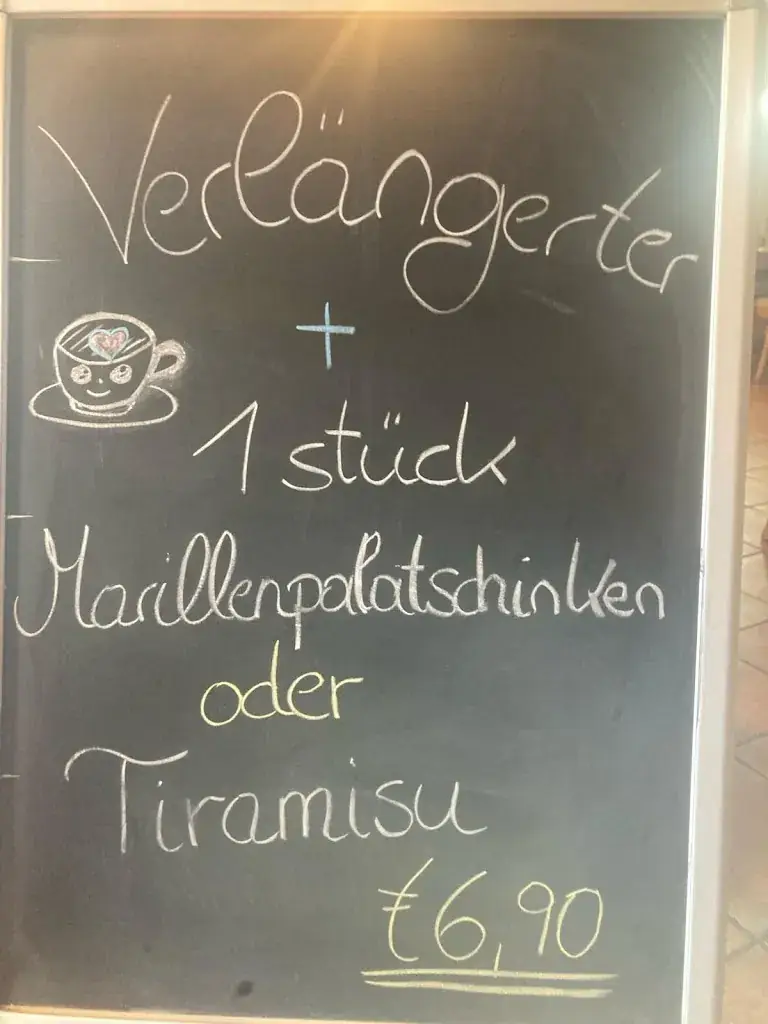 Verlängerter
+
1 stück
Marillenpalatschinken
oder
Tiramisu
€6,90